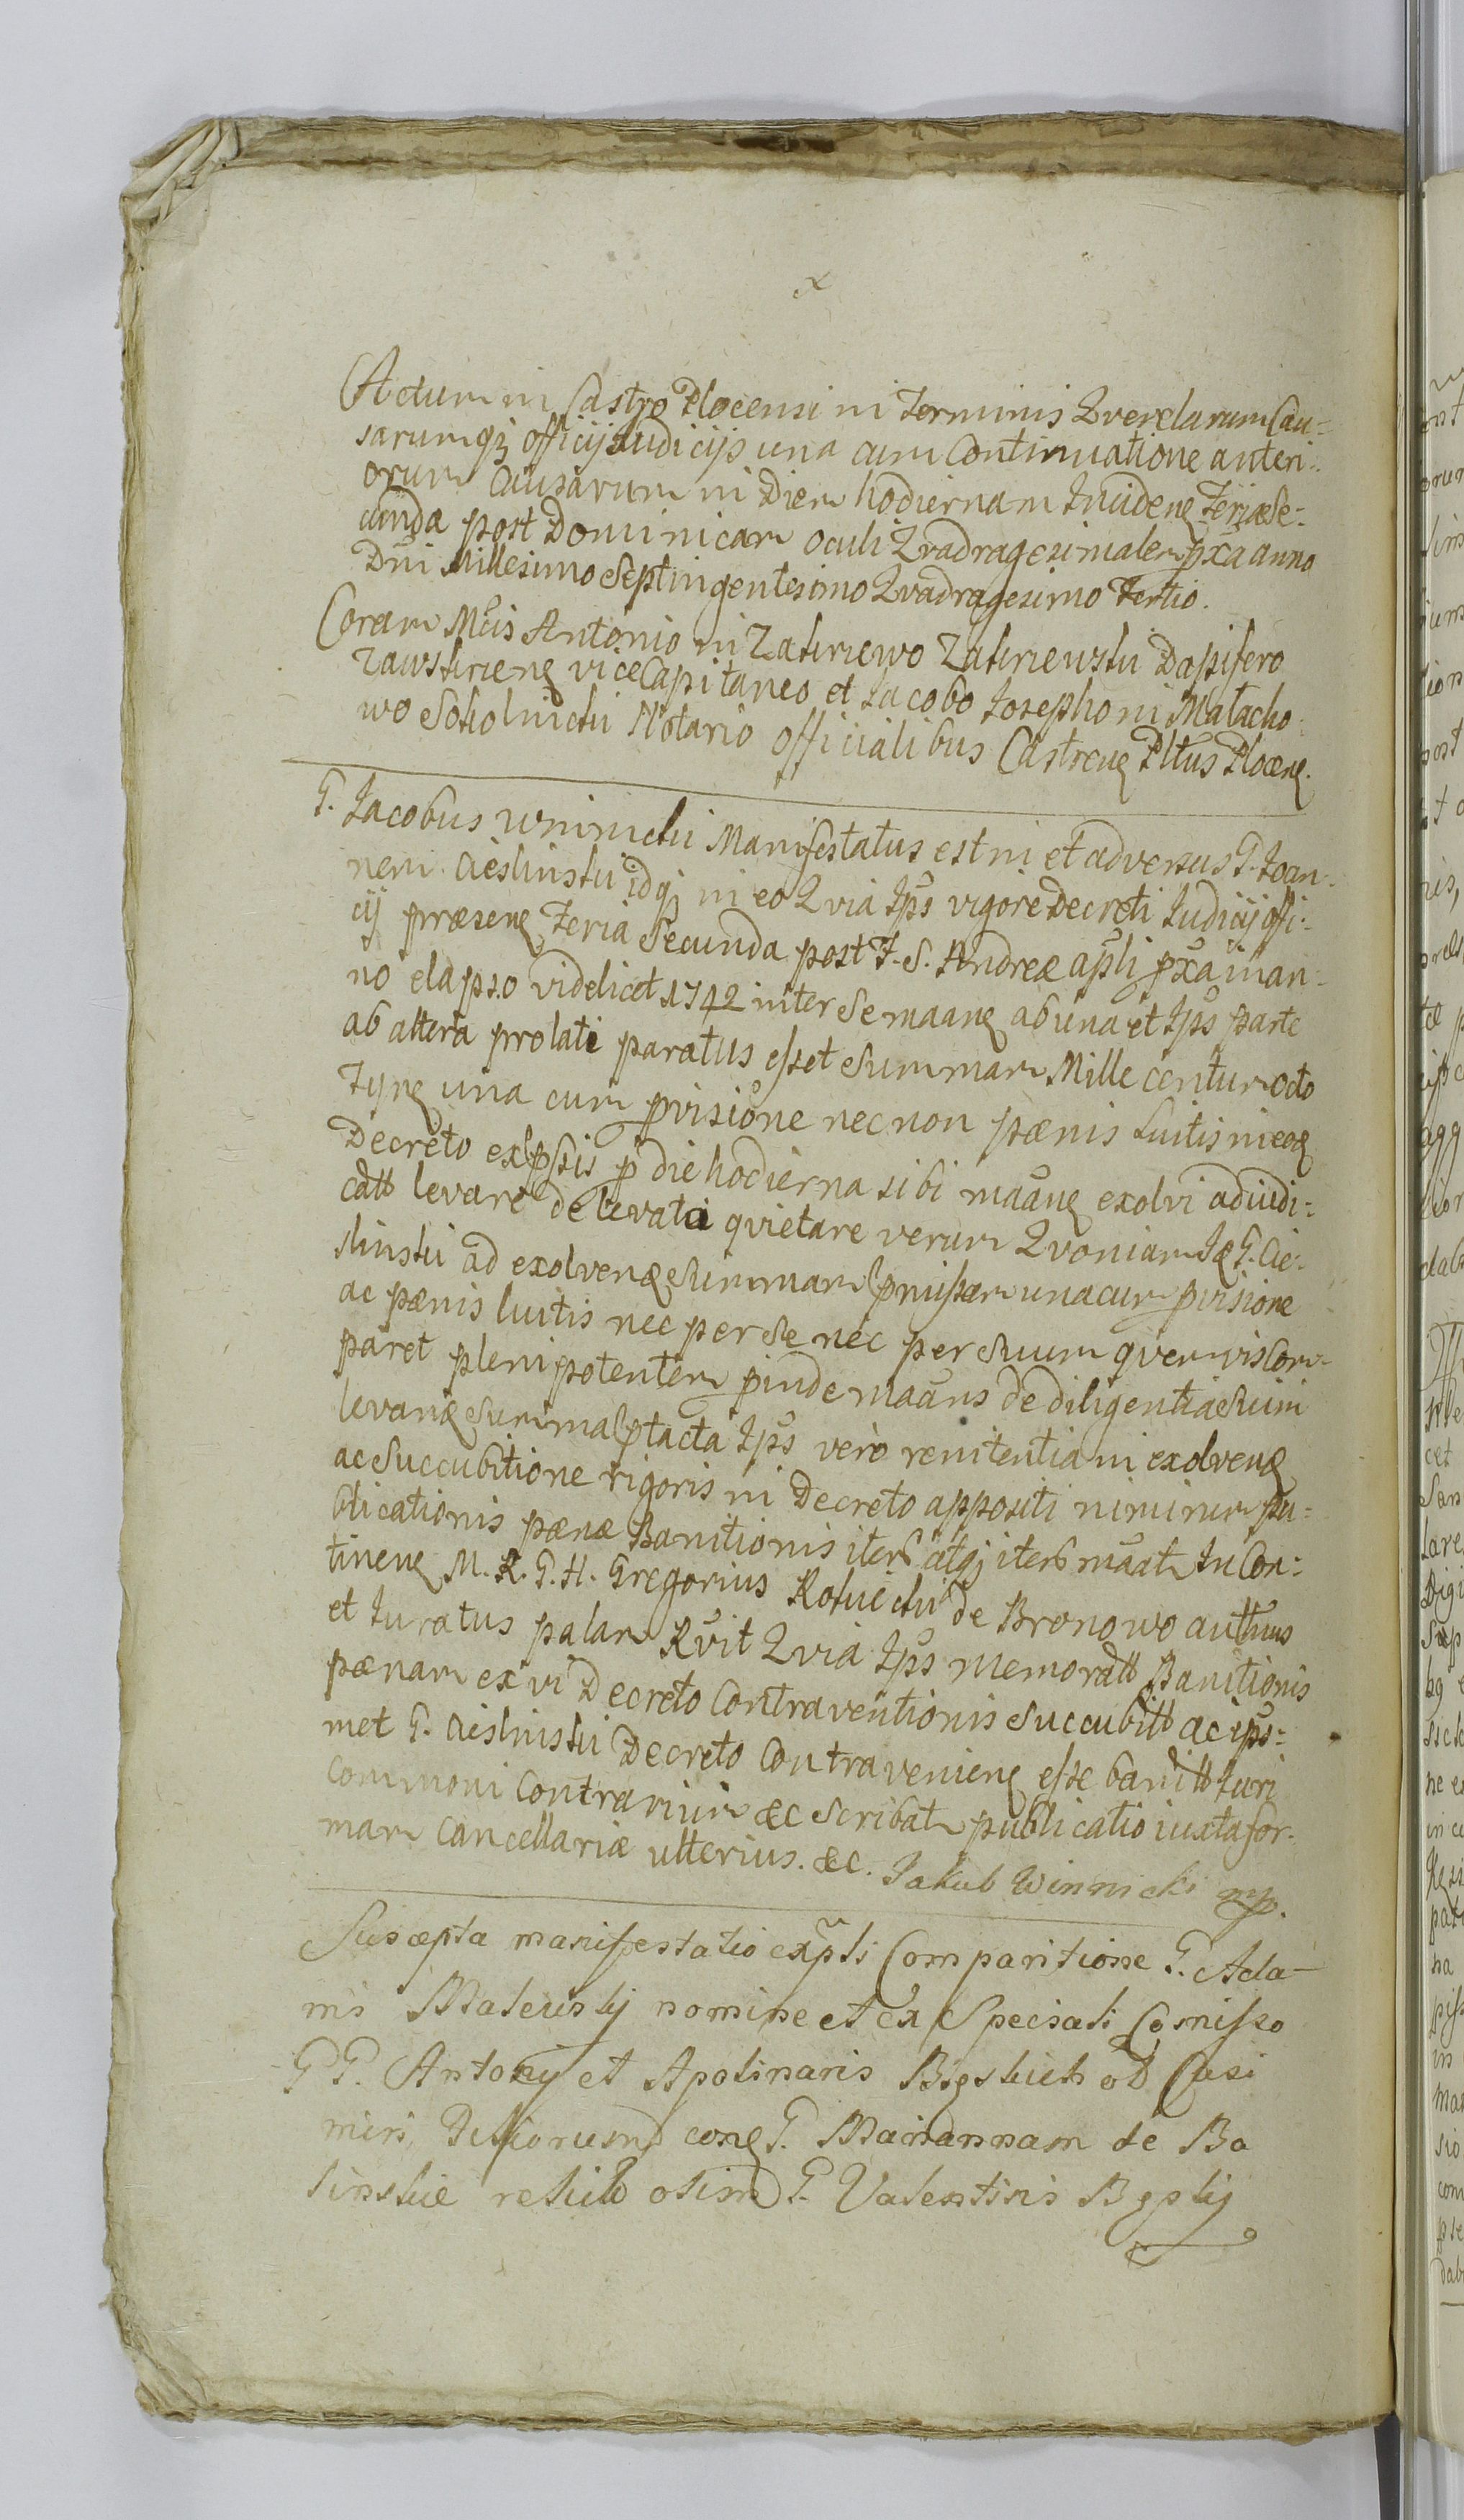 x
Actum in Castro Plocensi in Terminis Qverelarum Cau=
sarumqz officij Judicijs una cum Continuatione anteri=
orum Causarum in Diem hodiernam Inciden Feria Se=
cunda post Dominicam Oculi Qvadragesimalem pxa anno
Dni Millesimo Septingentesimo Qvadragesimo Tertio.
Coram Mcis Antonio in Zakrzewo Zakrzewski Dapifero
Zawskrzen viceCapitaneo et Jacobo Josepho in Małacho=
wo Sokolnicki Notario officialibus Castren Pltus Plocen.
G. Jacobus Winnicki Manifestatus est in et adversus G. Joan=
nem Cieslinski idqz in eo Qvia Ips vigore Decreti Judicij offi=
cij præsen Feria Secunda post F. S. Andreæ apli pxa in an=
no elapso videlicet 1742 inter Se maan ab una et Ips parte
ab altera prolati paratus esset Summam Mille centum octo
Tyn una cum pvisione nec non pænis luitis in eod
Decreto expssis p die hodierna sibi maan exolvi adiudi=
catt levare de levata qvietare verum Qvoniam Id G. Cie=
slinski ad exolvend Summam pmissam una cum pvisione
ac pænis luitis nec per Se nec per Suum qvemvis Com=
paret plenipotentem pinde maans de diligentia Sui in
levand Summa ptacta Ips verò renitentia in exolvend
ac Succubitione rigoris in Decreto appositi nimirum pu=
blicationis pænæ Banitionis iterb atqz iterb maat In Con=
tinen M. R. G. H. Gregorius Kotwicki de Bronowo authus
et Juratus palam Rvit Qvia Ips memoratt Banitionis
pænam ex vi Decreto Contraventionis Succubitt ac ips=
met G. Cieslinski Decreto Contravenien esse banitt Juri
Communi Contrarium &c Scribat publicatio iuxta for=
mam Cancellariæ ulterius. &c. Jakub Winnicki mp.
Suscepta manifestatio expti Comparitione G. Ada=
mi nomine et ex Speciali Comisso
G G. Antonij et Apolinaris et Casi
miri, con G. Mariannam de Ba
linskie relictb olim G. Valentini